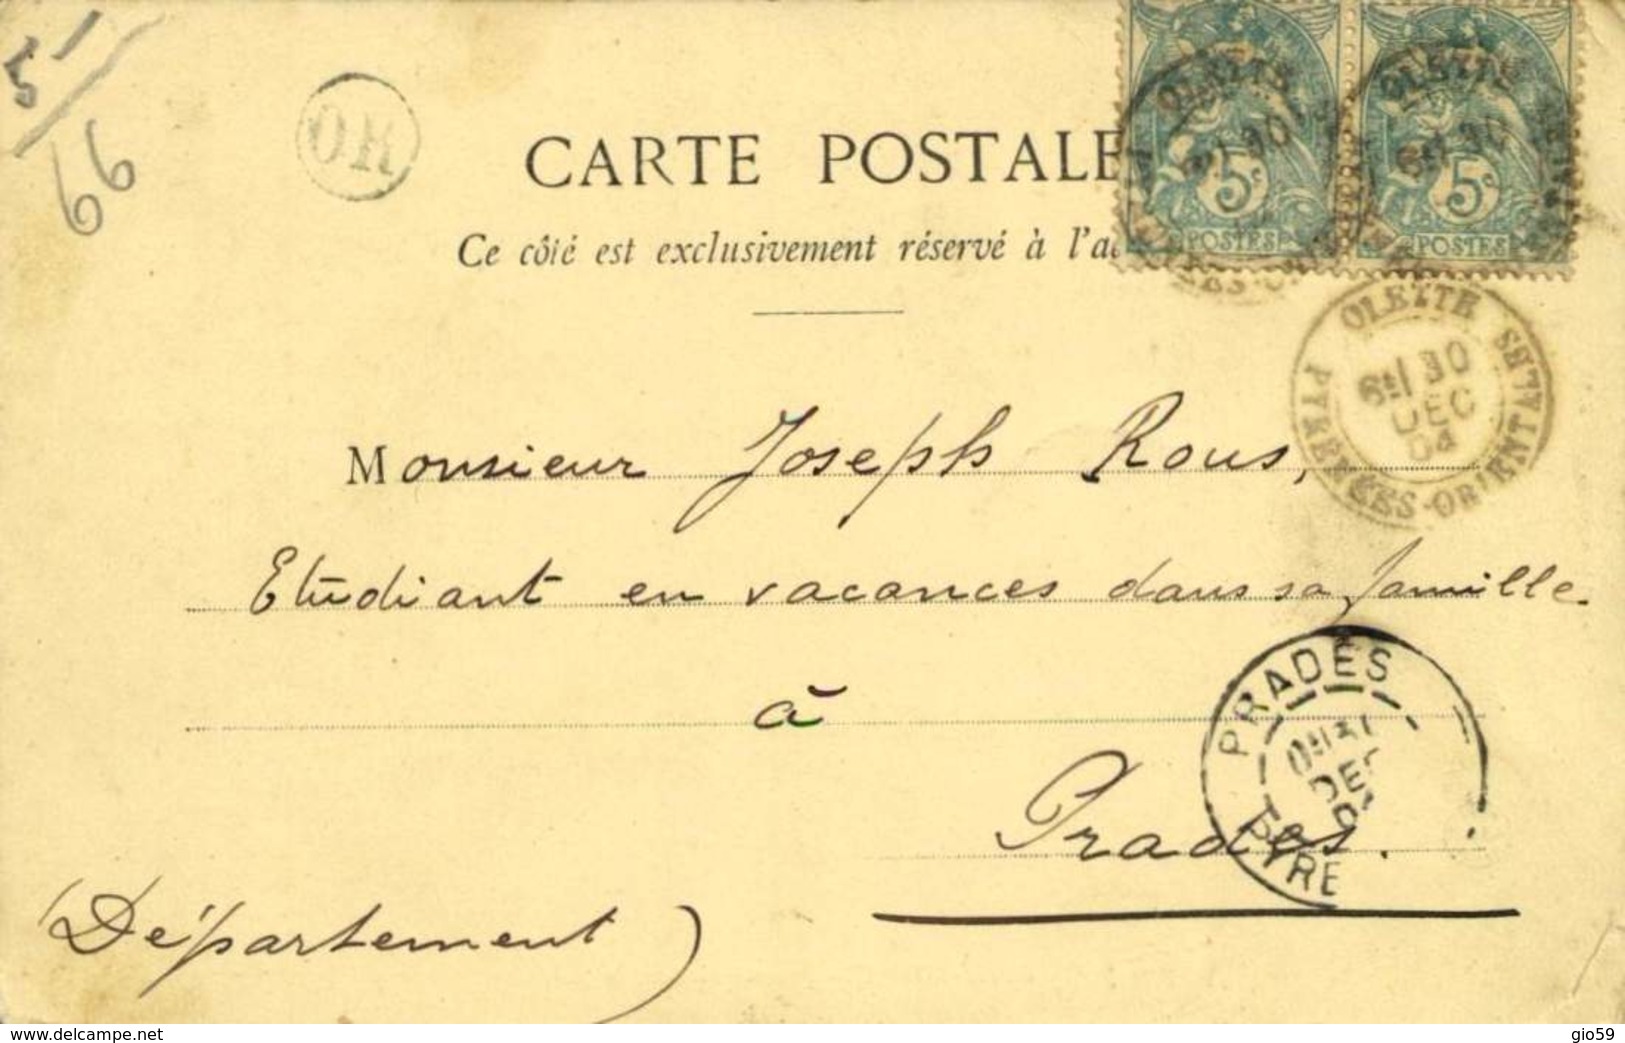 5 1
66
OR
CARTE POSTALE
Ce côté est exclusivement réservé à l'a
OLETTE
5c
POSTES
OLETTE
5c
POSTES
OLETTE
6E 30
DEC
04
PYRÉNÉES-ORIENTALES
Monsieur Joseph Rous,
Etudiant en vacances dans sa famille
à
Prades.
PRADES
31
DEC
PYRE
(Département)
www.delcampe.net
gio59